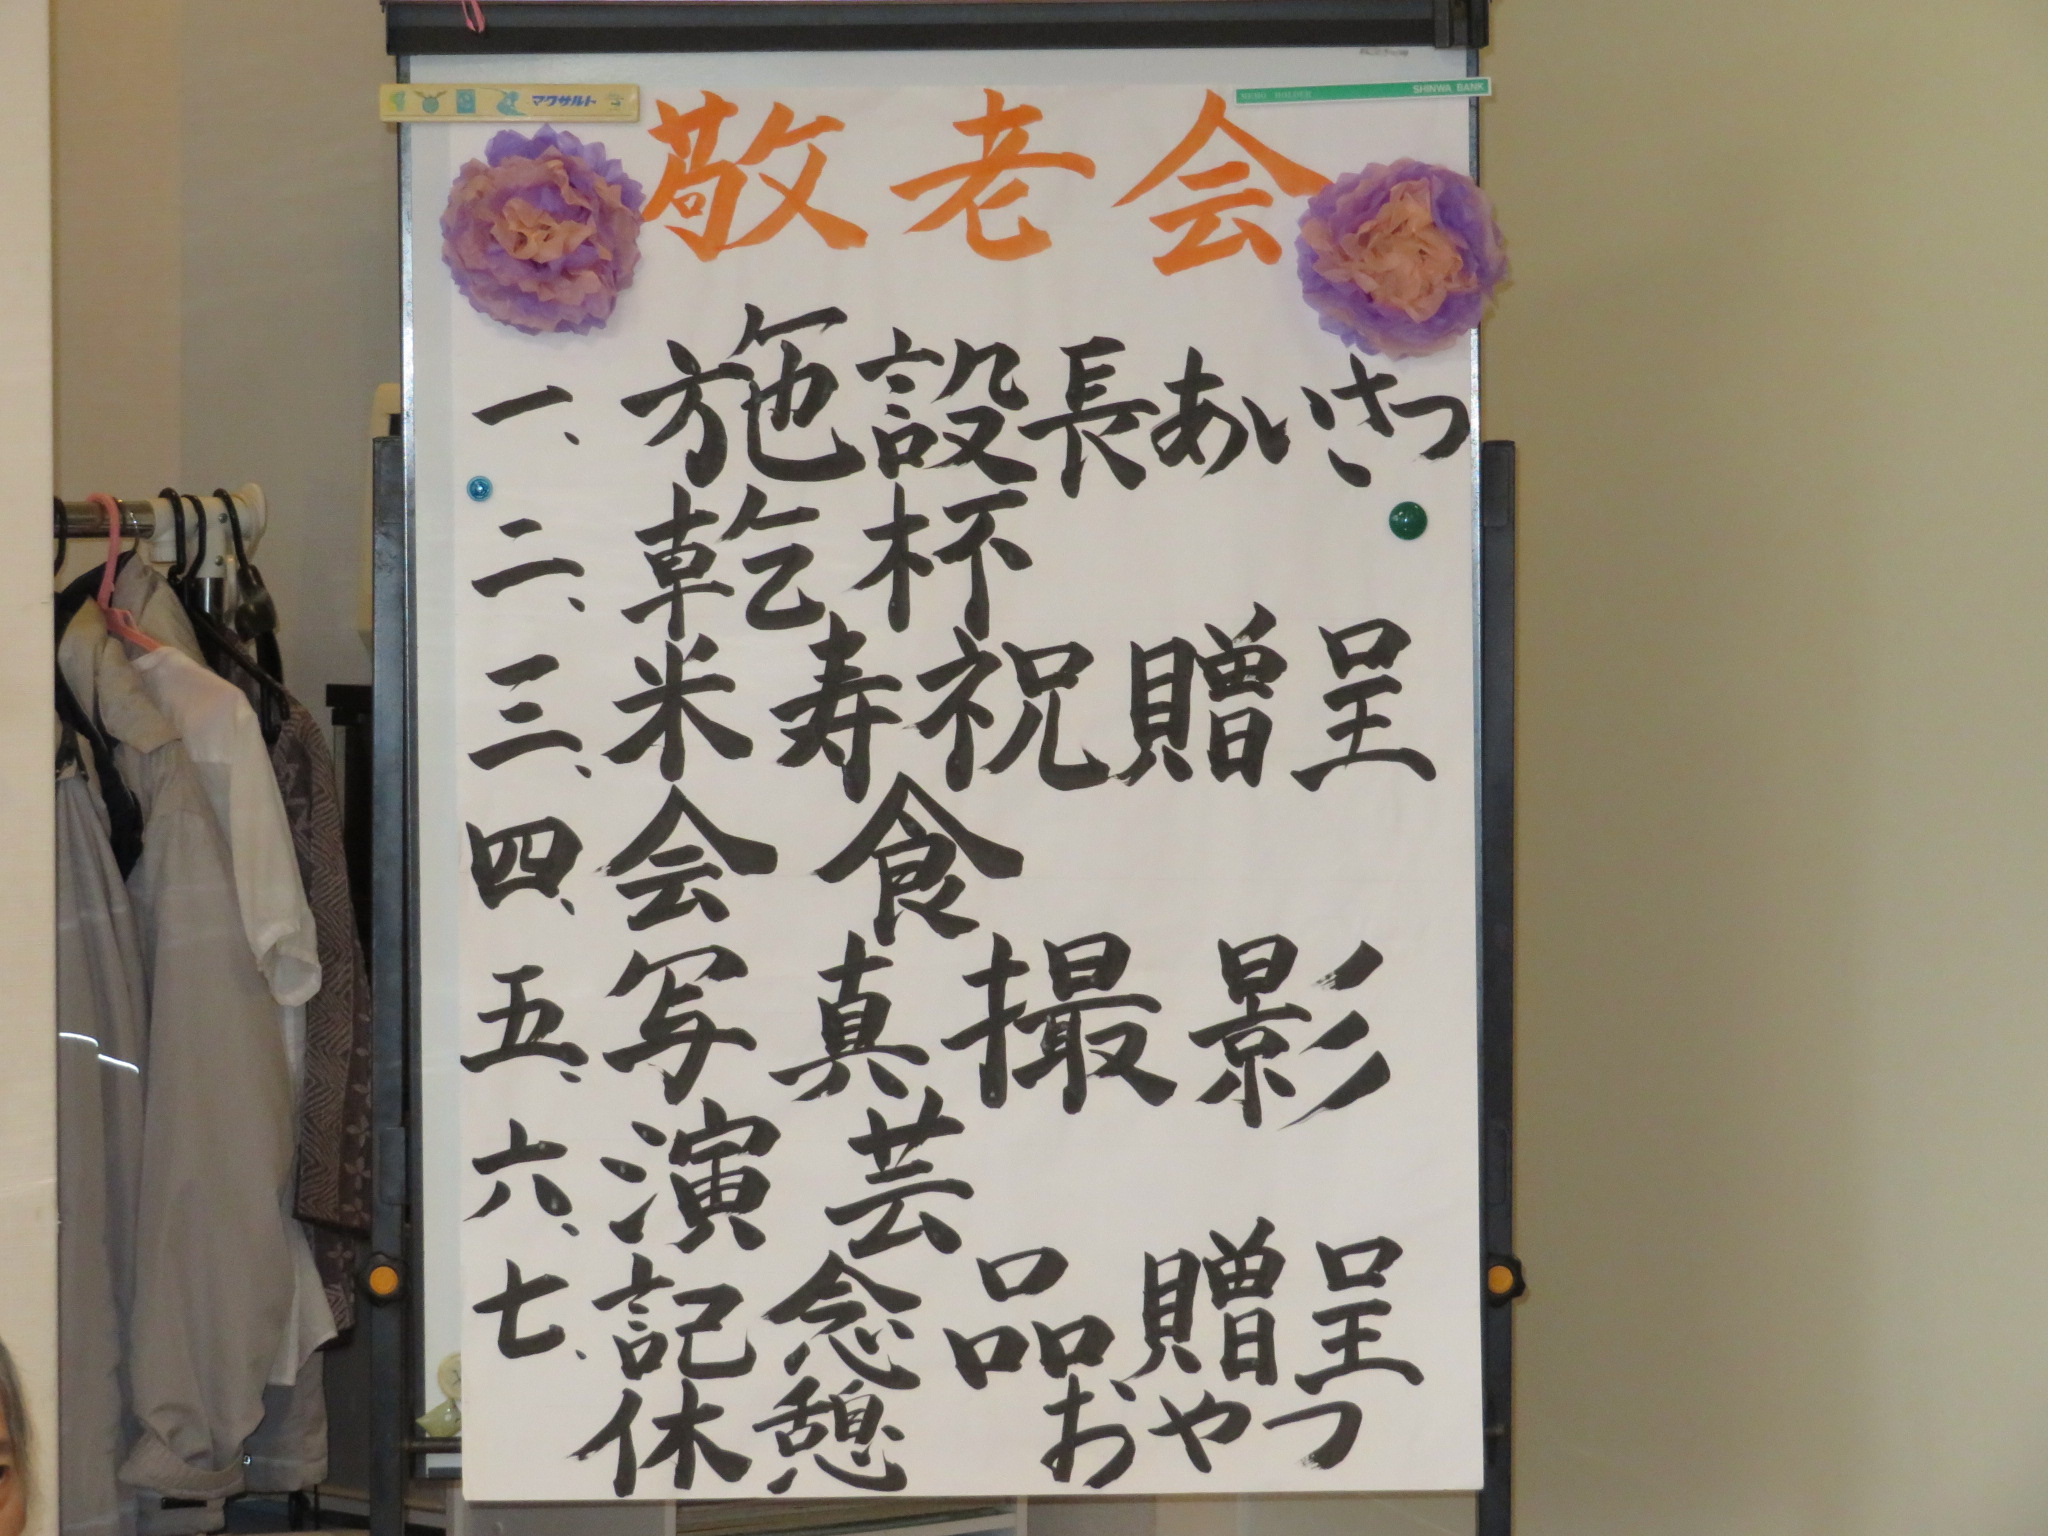 マクサルト
SHINWA BANK
敬老会
一、施設長あいさつ
二、乾杯
三、米寿祝贈呈
四、会食
五、写真撮影
六、演芸
七、記念品贈呈
休憩 おやつ